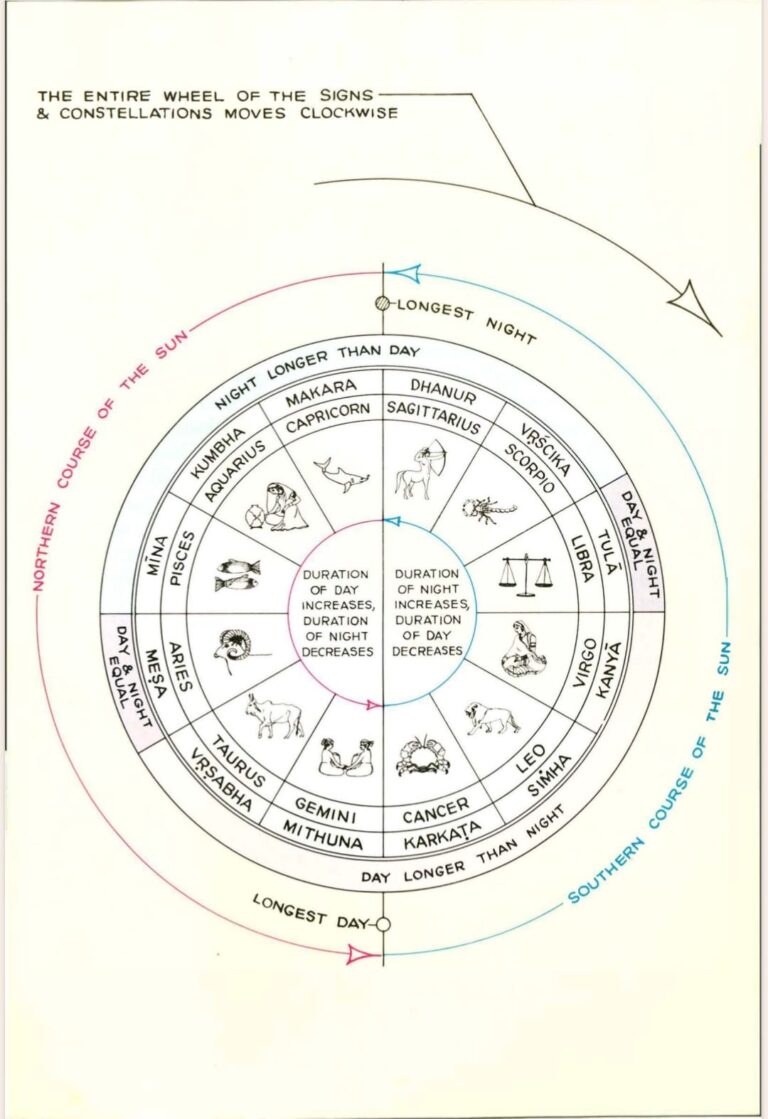 THE ENTIRE WHEEL OF THE SIGNS
& CONSTELLATIONS MOVES CLOCKWISE
LONGEST NIGHT
NORTHERN COURSE OF THE SUN
SOUTHERN COURSE OF THE SUN
NIGHT LONGER THAN DAY
DAY & NIGHT
EQUAL
DAY & NIGHT
EQUAL
DAY LONGER THAN NIGHT
MAKARA
CAPRICORN
DHANUR
SAGITTARIUS
VṚŚCIKA
SCORPIO
TULĀ
LIBRA
KANYĀ
VIRGO
LEO
SIṀHA
CANCER
KARKAṬA
GEMINI
MITHUNA
TAURUS
VṚṢABHA
ARIES
MEṢA
MĪNA
PISCES
KUMBHA
AQUARIUS
DURATION
OF DAY
INCREASES,
DURATION
OF NIGHT
DECREASES
DURATION
OF NIGHT
INCREASES,
DURATION
OF DAY
DECREASES
LONGEST DAY